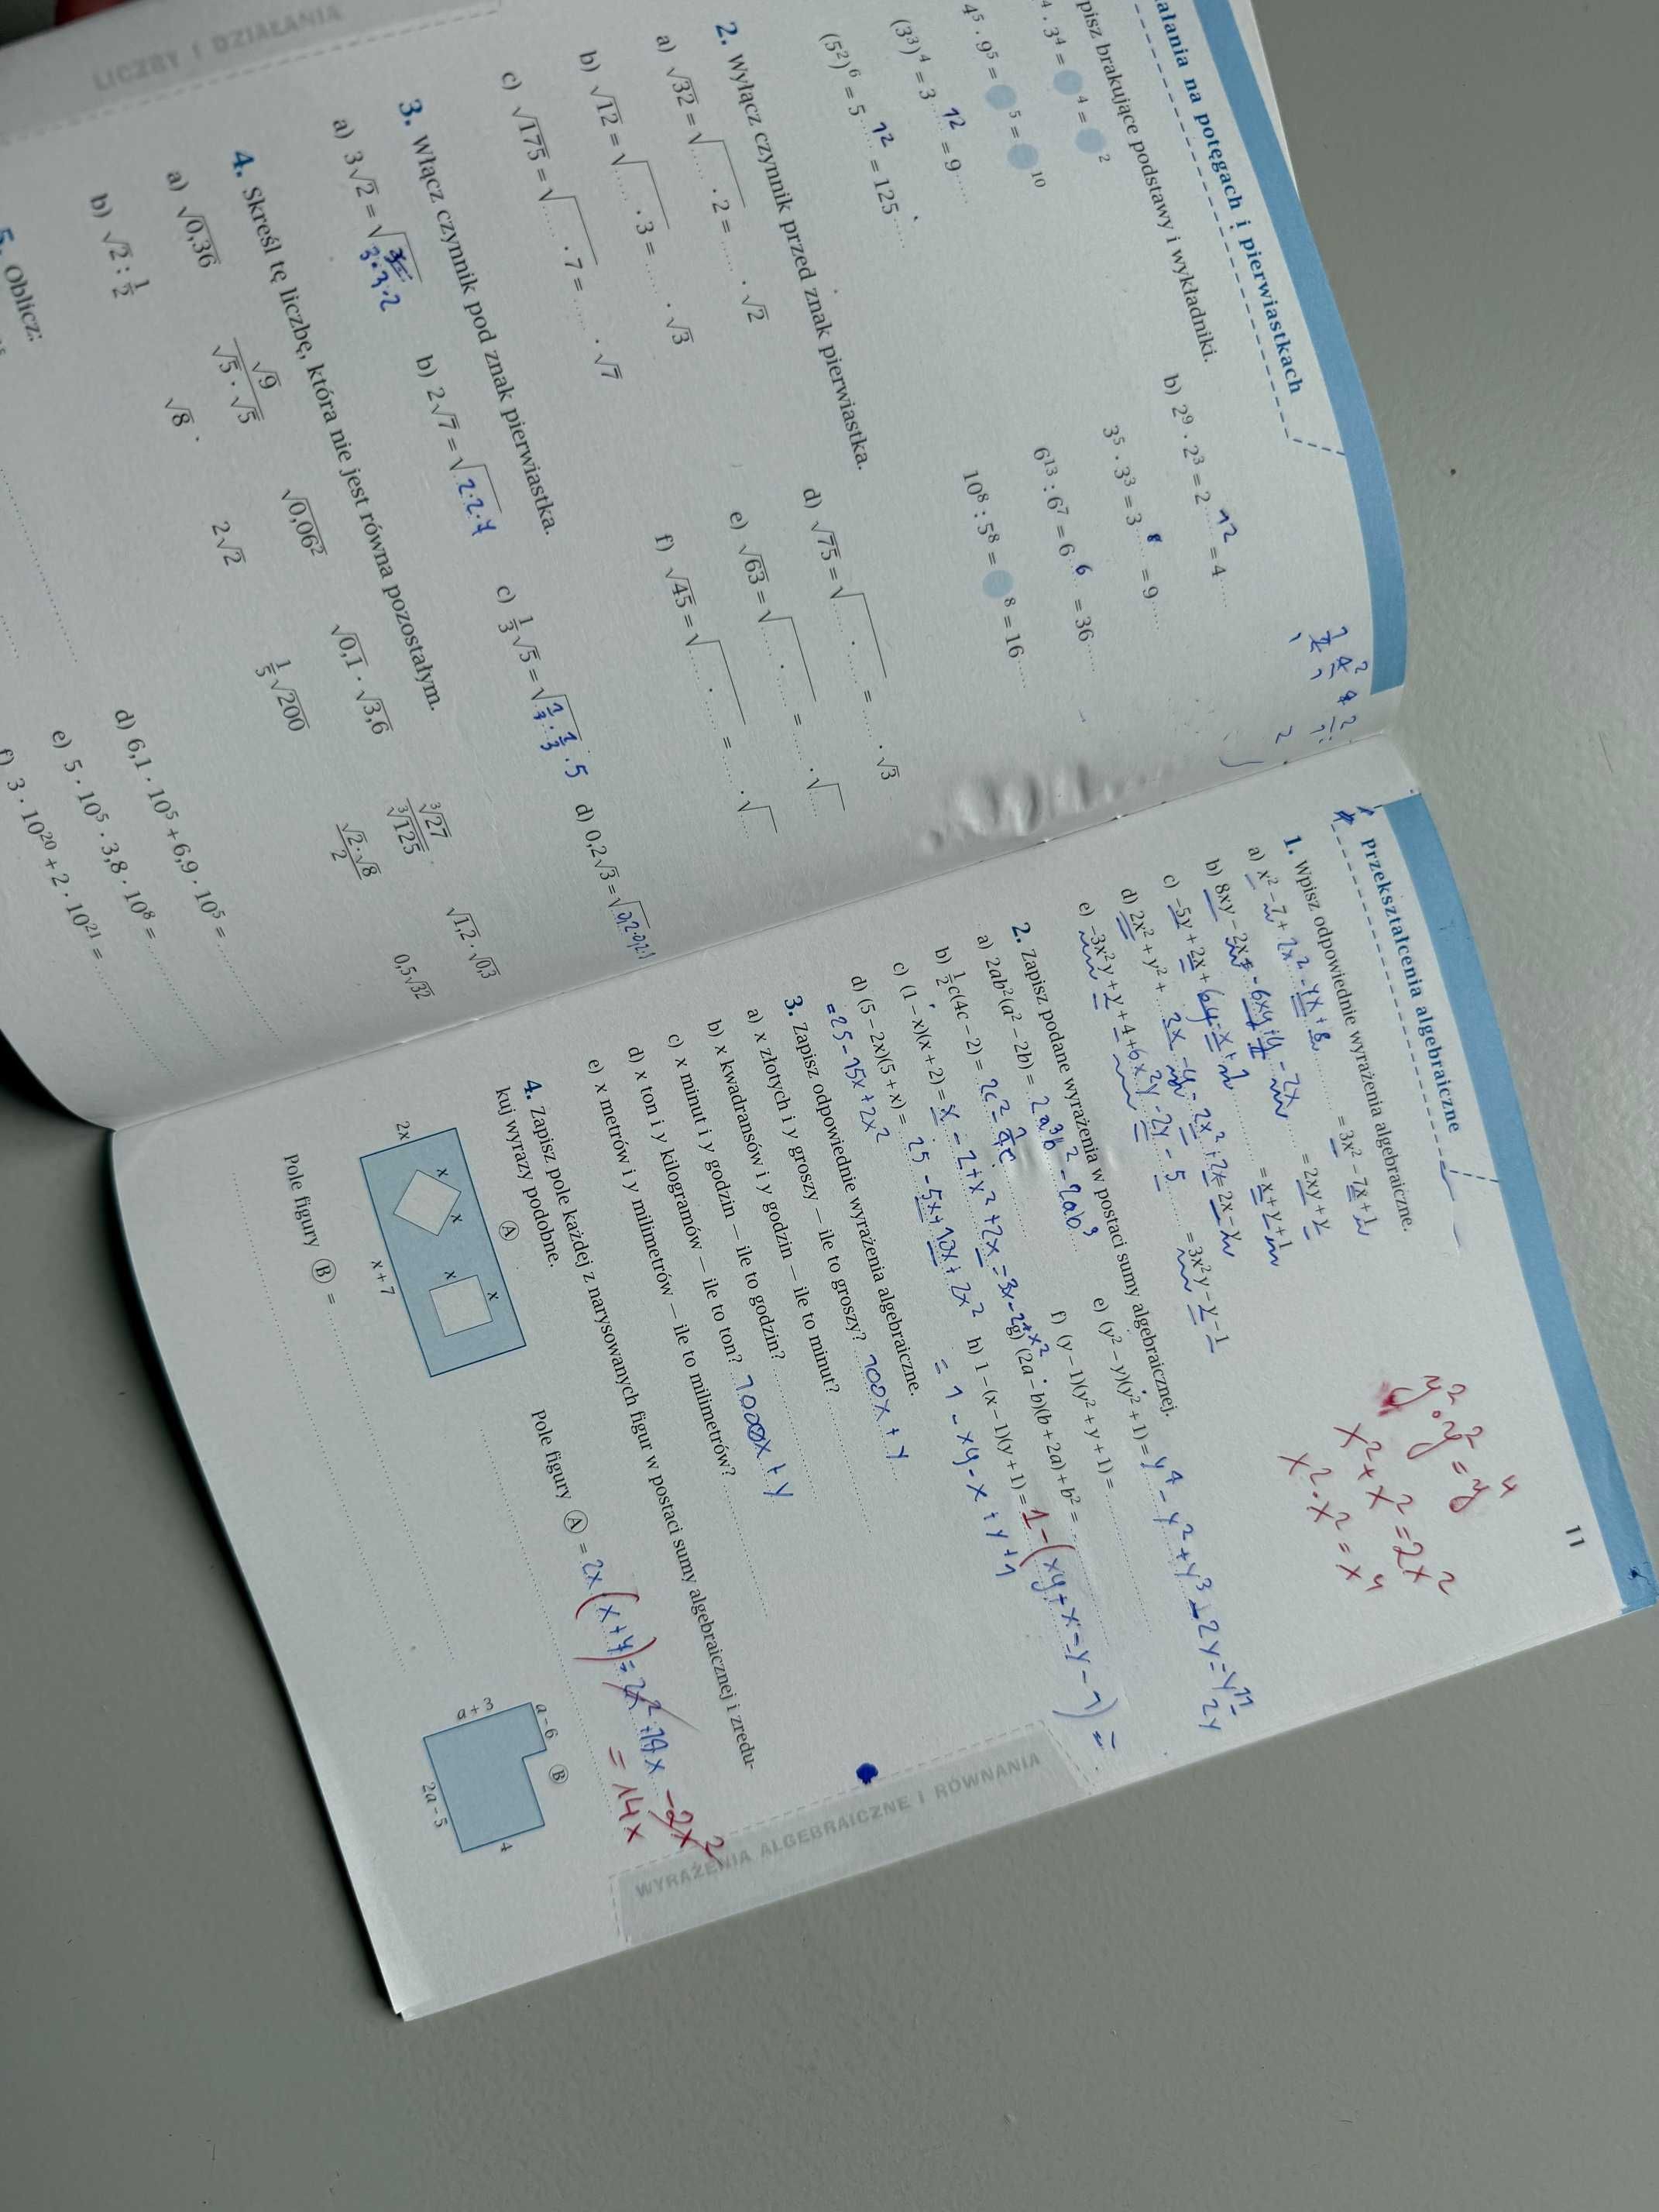 LICZBY I DZIAŁANIA
ałania na potęgach i pierwiastkach
pisz brakujące podstawy i wykładniki.
4 · 3⁴ = ⁴ = ²
4⁵ · 9⁵ = ⁵ = ¹⁰
(3³)⁴ = 3 12 = 9 ......
(5²)⁶ = 5 12 = 125 ......
b) 2⁹ · 2³ = 2 12 = 4 ......
3⁵ · 3³ = 3 8 = 9 ......
6¹³ : 6⁷ = 6 6 = 36 ......
10⁸ : 5⁸ = ⁸ = 16 ......
2. Wyłącz czynnik przed znak pierwiastka.
a) √32 = √...... · 2 = ...... · √2
b) √12 = √...... · 3 = ...... · √3
c) √175 = √...... · 7 = ...... · √7
d) √75 = √...... · ...... = ...... · √3
e) √63 = √...... · ...... = ...... · √......
f) √45 = √...... · ...... = ...... · √......
3. Włącz czynnik pod znak pierwiastka.
a) 3√2 = √3·3·2
b) 2√7 = √2·2·7
c) 1/3 √5 = √1/3 · 1/3 · 5
d) 0,2√3 = √
4. Skreśl tę liczbę, która nie jest równa pozostałym.
a) √0,36 √9/(√5 · √5) √0,06² √0,1 · √3,6 ³√27/³√125 √1,2 · √0,3
b) √2 : 1/2 √8 2√2 1/5 √200 (√2·√8)/2 0,5√32
5. Oblicz:
d) 6,1 · 10⁵ + 6,9 · 10⁵ = ......
e) 5 · 10⁵ · 3,8 · 10⁸ = ......
f) 3 · 10²⁰ + 2 · 10²¹ = ......
11
Przekształcenia algebraiczne
y² · y² = y⁴
x² + x² = 2x²
x² · x² = x⁴
1. Wpisz odpowiednie wyrażenia algebraiczne.
a) x² − 7 + 2x² − 7x + 8 = 3x² − 7x + 1
b) 8xy − 2x + − 6xy + y − 2x = 2xy + y
c) −5y + 2x + (6y − x + 1 = x + y + 1
d) 2x² + y² + 2x − y − 2x² + 2x = 2x − y
e) −3x²y + y + 4 + 6x²y − 2y − 5 = 3x²y − y − 1
2. Zapisz podane wyrażenia w postaci sumy algebraicznej.
a) 2ab²(a² − 2b) = 2a³b² − 2ab³
b) 1/2 c(4c − 2) = 2c²
c) (1 − x)(x + 2) = x − 2 + x² + 2x = 3x − 2 + x²
d) (5 − 2x)(5 + x) = 25 − 5x + 10x + 2x²
= 25 − 15x + 2x²
e) (y² − y)(y² + 1) = y⁴ − y² + y³ + 2y = y¹¹ − 2y
f) (y − 1)(y² + y + 1) = ......
g) (2a − b)(b + 2a) + b² = ......
h) 1 − (x − 1)(y + 1) = 1 − (xy + x − y − 1) =
= 1 − xy − x + y + 1
3. Zapisz odpowiednie wyrażenia algebraiczne.
a) x złotych i y groszy — ile to groszy? 100x + y
b) x kwadransów i y godzin — ile to minut? ......
c) x minut i y godzin — ile to godzin? ......
d) x ton i y kilogramów — ile to ton? 1000x + y
e) x metrów i y milimetrów — ile to milimetrów? ......
4. Zapisz pole każdej z narysowanych figur w postaci sumy algebraicznej i zredu-
kuj wyrazy podobne.
A
2x
x
x
x
x
x + 7
Pole figury A = 2x(x+7) = 2x² + 14x − 2x²
= 14x
B
a − 6
a + 3
2a − 5
4
Pole figury B = ......
WYRAŻENIA ALGEBRAICZNE I RÓWNANIA